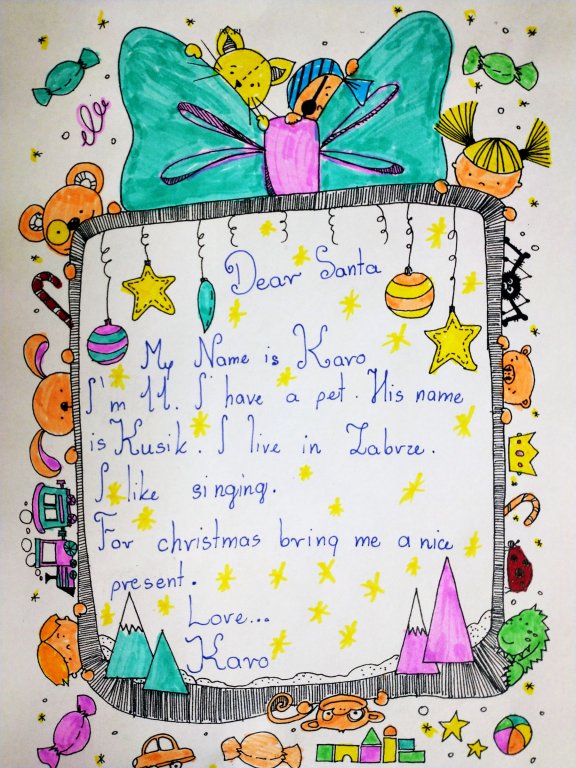 Dear Santa
My Name is Karo
I'm 11. I have a pet. His name
is Kusik. I live in Zabrze.
I like singing.
For christmas bring me a nice
present.
Love...
Karo